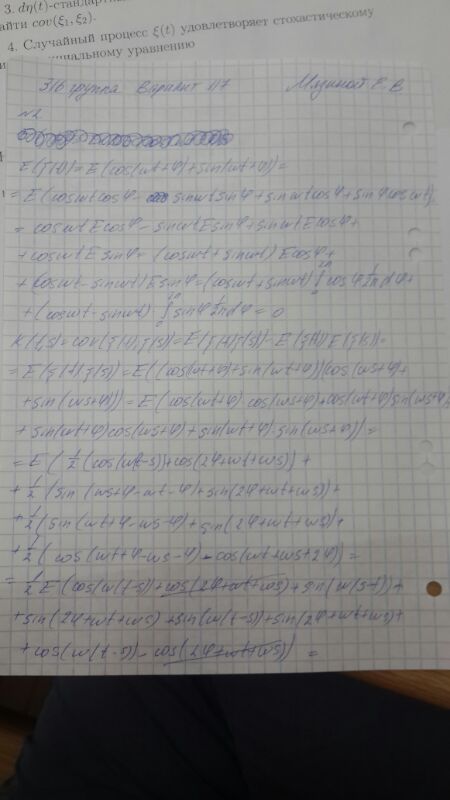 3. dη(t)-стандартн
айти cov(ξ₁, ξ₂).
4. Случайный процесс ξ(t) удовлетворяет стохастическому
циальному уравнению
316 группа Вариант №7
N2
E(ξ(t))=E(cos(wt+φ)+sin(wt+φ))=
=E(coswt cosφ- sinwt sinφ+sinwt cosφ+sinφ coswt)
= coswt Ecosφ - sinwt Esinφ+sinwt Ecosφ+
+coswt E sinφ= (coswt+sinwt) Ecosφ+
+(coswt-sinwt) Esinφ=(coswt+sinwt) ∫₀^2π cosφ 1/2π dφ+
+(coswt-sinwt) ∫₀^2π sinφ 1/2π dφ = 0
K(t,s)=cov(ξ(t),ξ(s))=E(ξ(t)ξ(s))-E(ξ(t))E(ξ(s))=
=E(ξ(t)ξ(s))=E((cos(wt+φ)+sin(wt+φ))(cos(ws+φ)+
+sin(ws+φ)))=E(cos(wt+φ)·cos(ws+φ)+cos(wt+φ)sin(ws+φ)
+sin(wt+φ)cos(ws+φ)+sin(wt+φ)·sin(ws+φ))=
=E(1/2(cos(w(t-s))+cos(2φ+wt+ws))+
+1/2(sin(ws+φ-wt-φ)+sin(2φ+wt+ws))+
+1/2(sin(wt+φ-ws-φ)+sin(2φ+wt+ws))+
+1/2(cos(wt+φ-ws-φ)-cos(wt+ws+2φ))=
=1/2E(cos(w(t-s))+cos(2φ+wt+ws)+sin(w(s-t))+
+sin(2φ+wt+ws)+sin(w(t-s))+sin(2φ+wt+ws)+
+cos(w(t-s))-cos(2φ+wt+ws))=